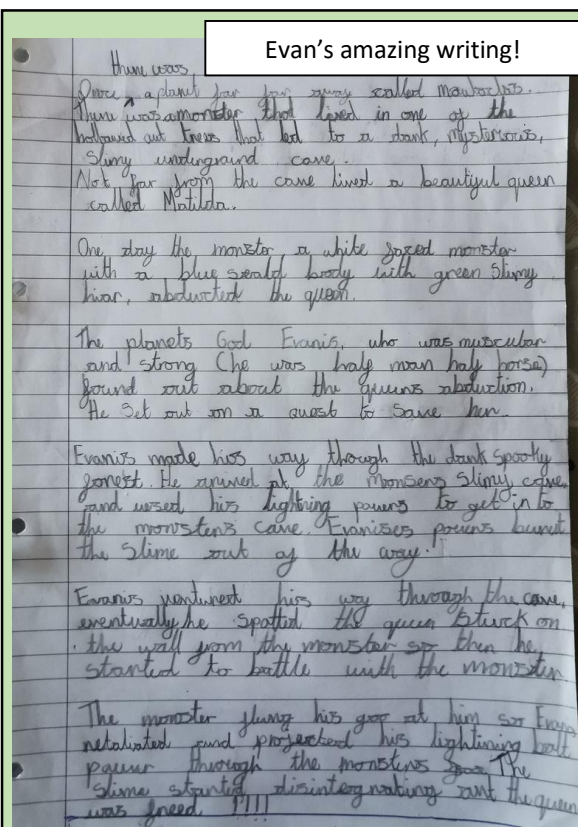 Evan's amazing writing!
there was,
Once a planet far far away called
There was a monster that lived in one of the
hollowed out trees that led to a dark, mysteriois,
Slimy underground cave.
Not far from the cave lived a beautiful queen
called Matilda.
One day the monster a white faced monster
with a blue body with green Slimy
hiar, abducted the queen.
The planets God Evanis, who was muscular
and strong (he was half man half horse)
found out about the queens abduction.
He Set out on a quest to Save her.
Evanis made his way though the dark spooky
forest. He arrived at the monsers Slimy cave,
and used his lightning powers to get in to
the monsters cave. Evanises powers burnt
the Slime out of the way.
Evanis ventured his way through the cave,
eventually he spotted the queen Stuck on
the wall from the monster so then he
started to battle with the monster.
The monster flung his goo at him so
retaliated and projected his lightining bolt
power through the monsters The
Slime started disintegrating and the queen
was freed !!!!